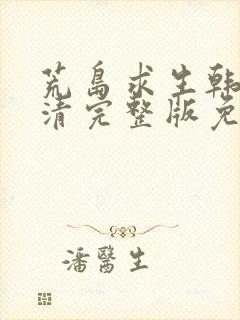 荒島求生韩
清完整版免
潘醫生